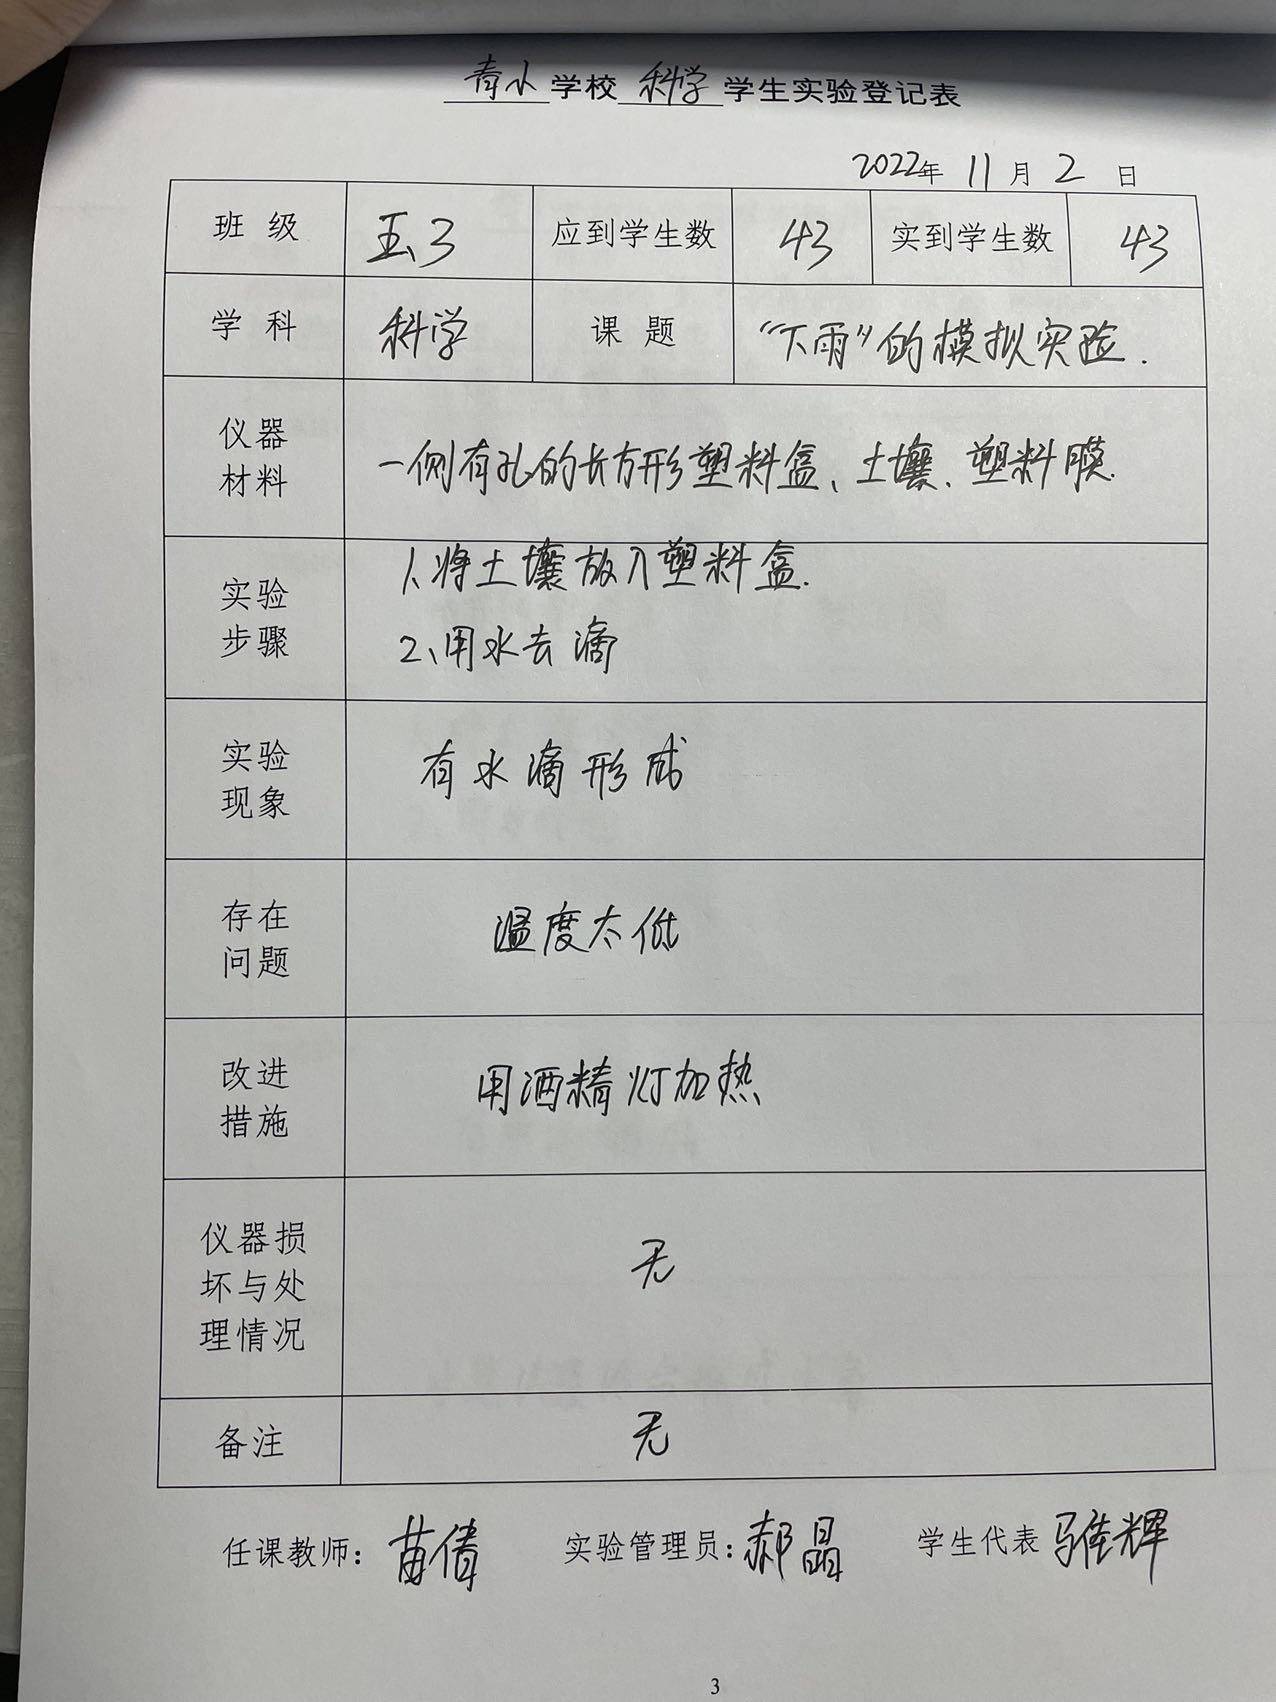 青小学校科学学生实验登记表
2022年 11月 2 日
班级 五、3 应到学生数 43 实到学生数 43
学科 科学 课题 “下雨”的模拟实验.
仪器
材料
一侧有孔的长方形塑料盒、土壤、塑料膜.
实验
步骤
1、将土壤放入塑料盒.
2、用水去滴
实验
现象
有水滴形成
存在
问题
温度太低
改进
措施
用酒精灯加热
仪器损
坏与处
理情况
无
备注
无
任课教师：苗倩 实验管理员：郝晶 学生代表 骆佳辉
3